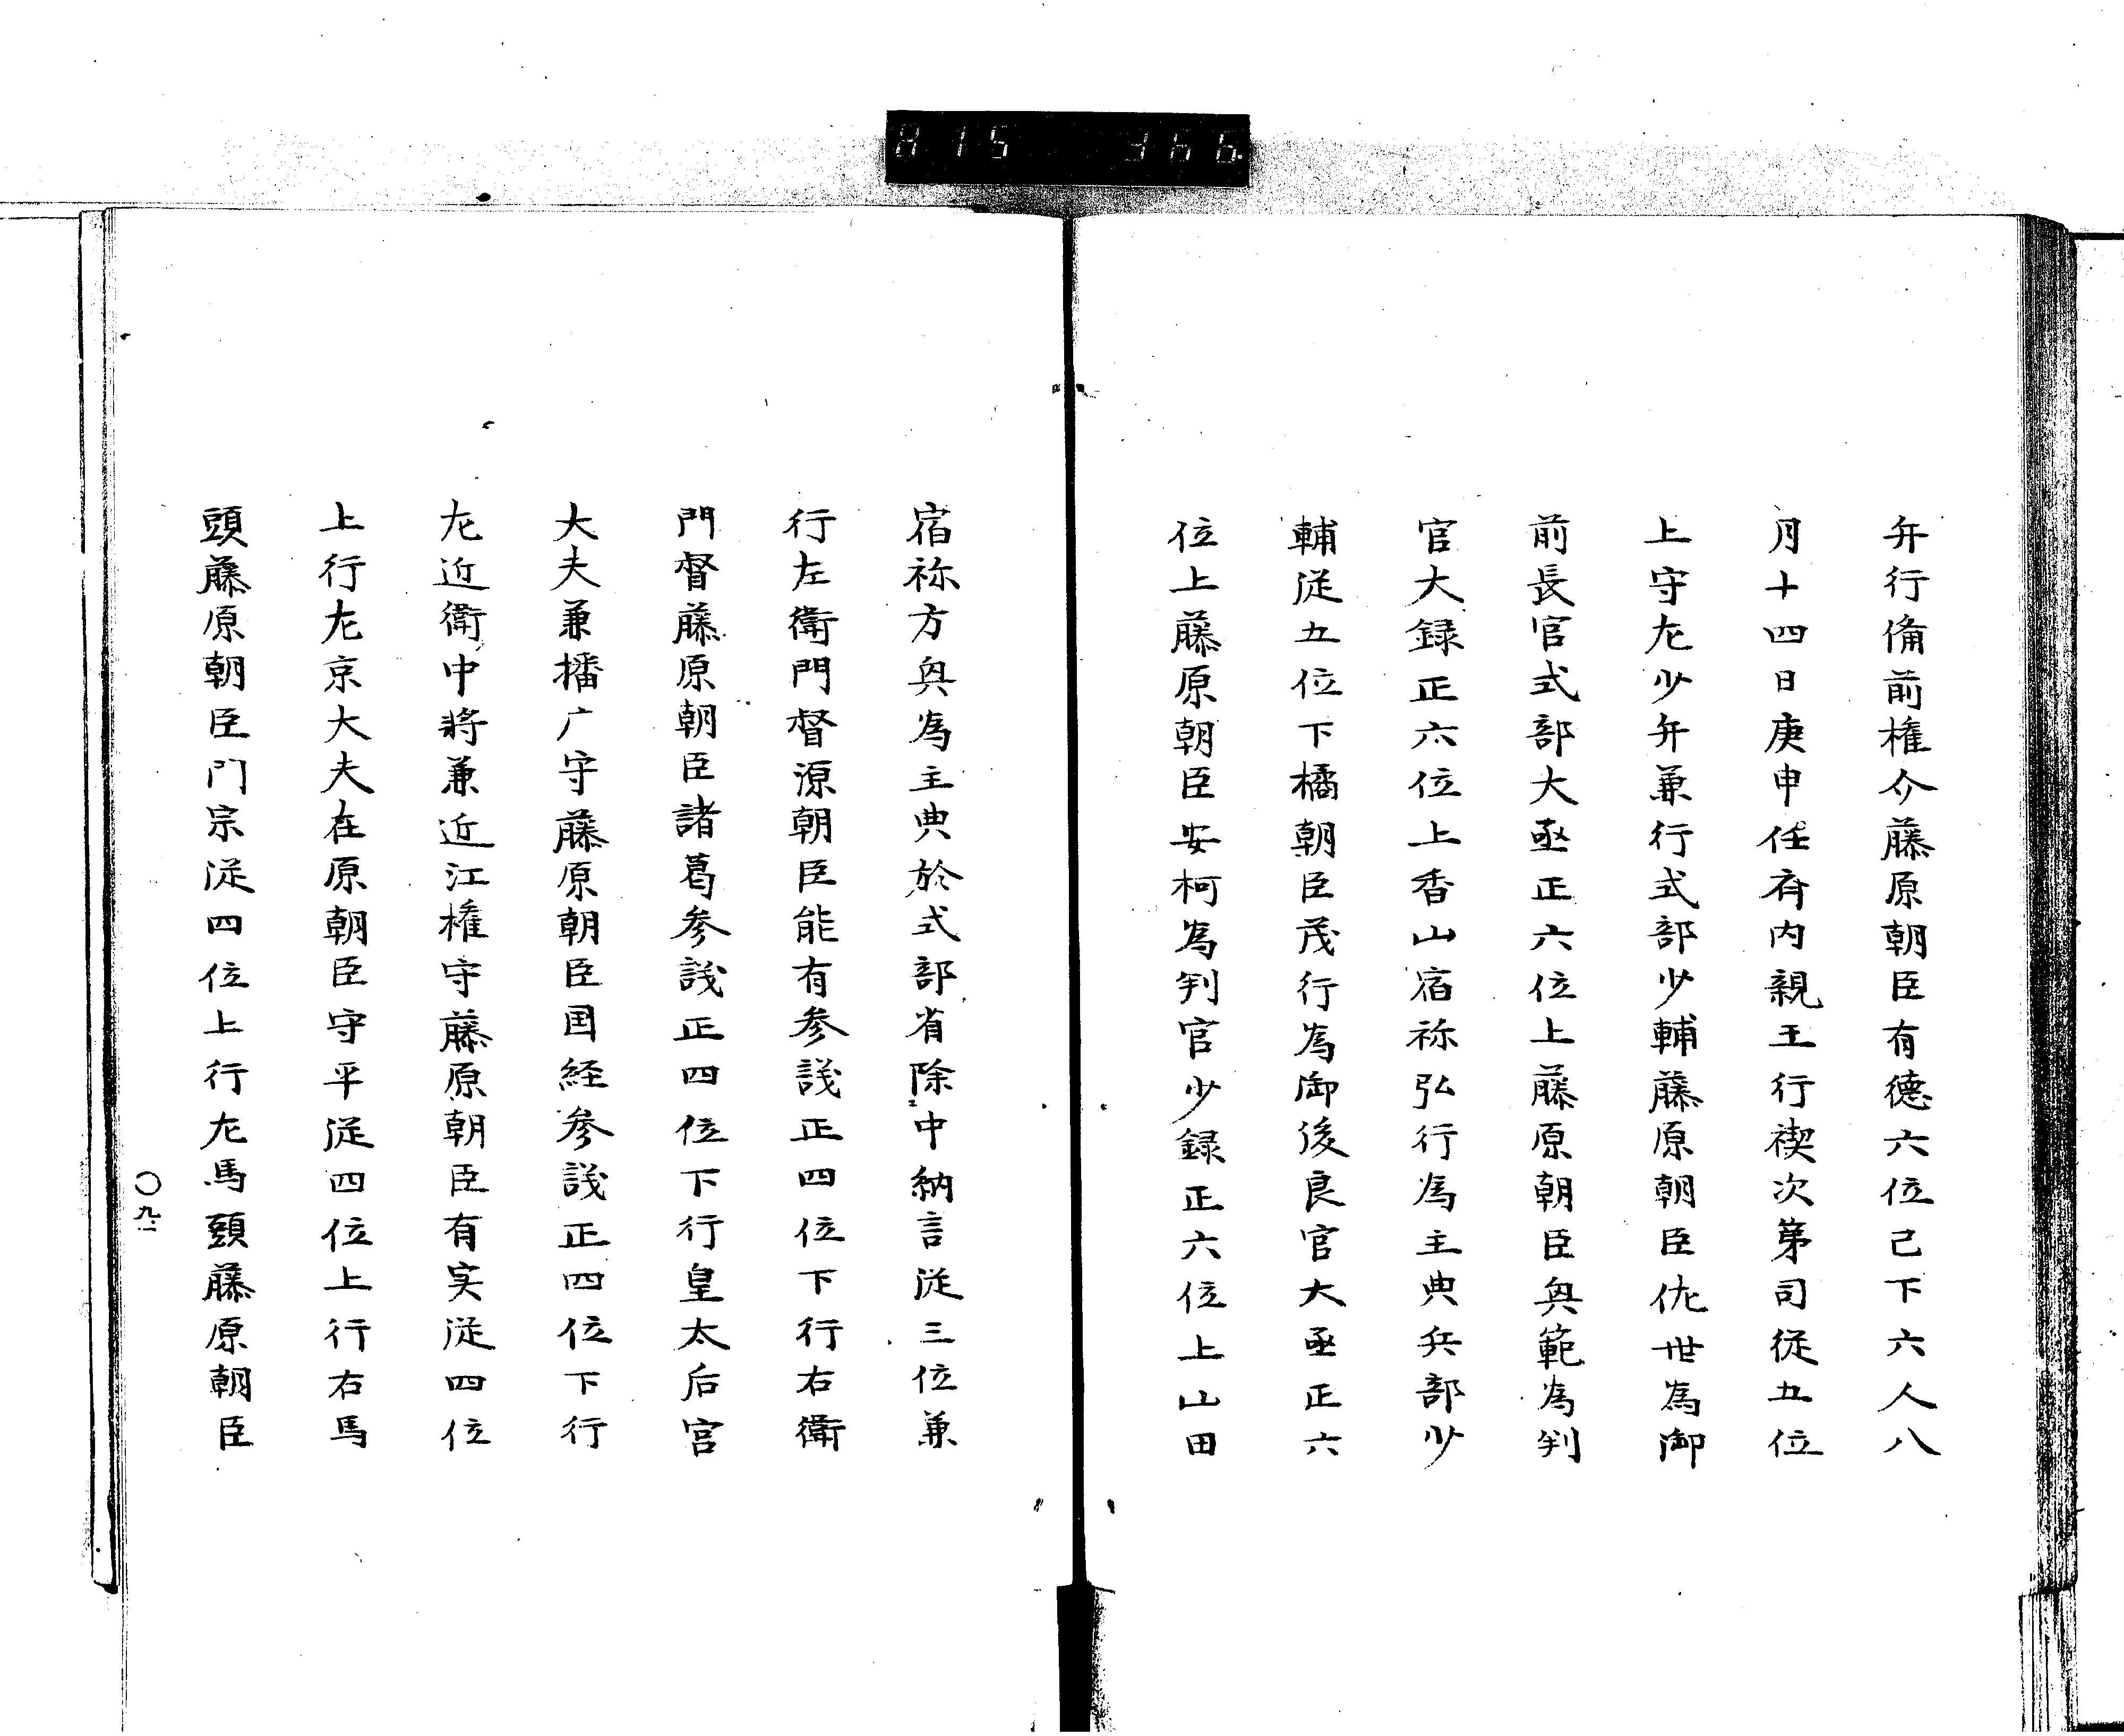 815 366
弁行俻前権介藤原朝臣有徳六位已下六人八
月十四日庚申任斎内親王行禊次第司従五位
上守左少弁兼行式部少輔藤原朝臣佐世為御
前長官式部大丞正六位上藤原朝臣興範為判
官大録正六位上香山宿祢弘行為主典兵部少
輔従五位下橘朝臣茂行為御後長官大丞正六
位上藤原朝臣安柯為判官少録正六位上山田
宿祢方興為主典於式部省除中納言従三位兼
行左衛門督源朝臣能有参議正四位下行右衛
門督藤原朝臣諸葛参議正四位下行皇太后宮
大夫兼播广守藤原朝臣国経参議正四位下行
左近衛中将兼近江権守藤原朝臣有実従四位
上行左京大夫在原朝臣守平従四位上行右馬
頭藤原朝臣門宗従四位上行左馬頭藤原朝臣
〇九一